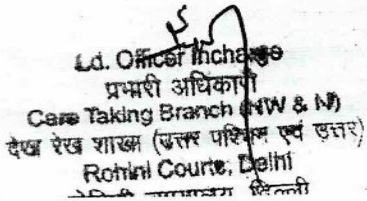 Ld. Officer Incharge
प्रभारी अधिकारी
Care Taking Branch (NW & N)
देख रेख शाखा (उत्तर पश्चिम एवं उत्तर)
Rohini Courts, Delhi
दिल्ली